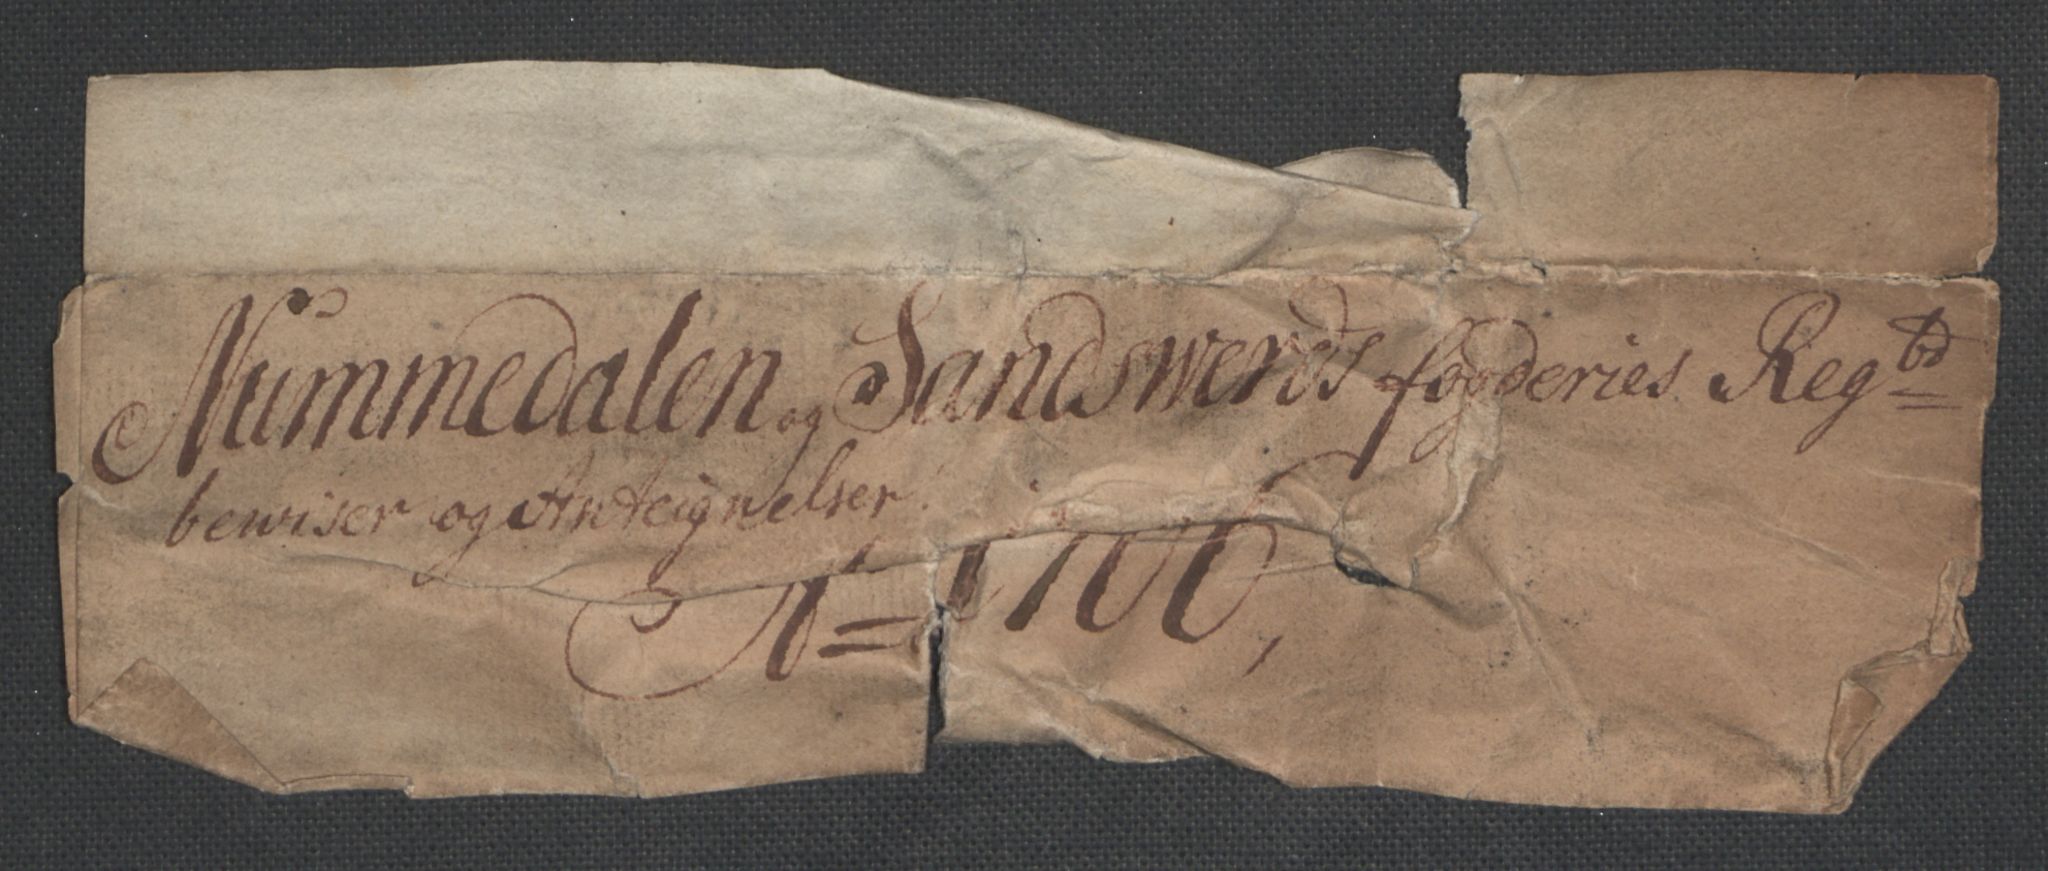 Nummedalen og Sandswerds fogderies Regbs
bewiser og Anteignelser.
Ao = 1706,